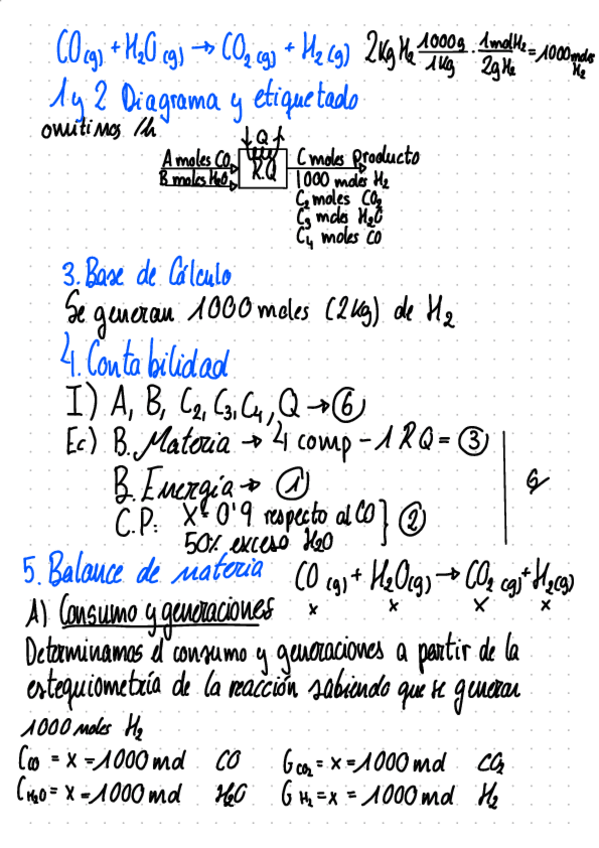 CO(g) + H2O(g) → CO2(g) + H2(g) 2Kg H2 1000g/1Kg · 1mol H2/2g H2 = 1000 moles H2
1 y 2 Diagrama y etiquetado
omitimos /h
Q
A moles CO R.Q C moles Producto
B moles H2O 1000 moles H2
C2 moles CO2
C3 moles H2O
C4 moles CO
3. Base de Cálculo
Se generan 1000 moles (2kg) de H2
4. Contabilidad
I) A, B, C2, C3, C4, Q → 6
Ec) B. Materia → 4 comp - 1 RQ = 3
B. Energía → 1
C.P: X = 0'9 respecto al CO } 2
50% exceso H2O
5. Balance de materia CO(g) + H2O(g) → CO2(g) + H2(g)
x x x x
A) Consumo y generaciones
Determinamos el consumo y generaciones a partir de la
estequiometría de la reacción sabiendo que se generan
1000 moles H2
C CO = x = 1000 mol CO G CO2 = x = 1000 mol CO2
C H2O = x = 1000 mol H2O G H2 = x = 1000 mol H2